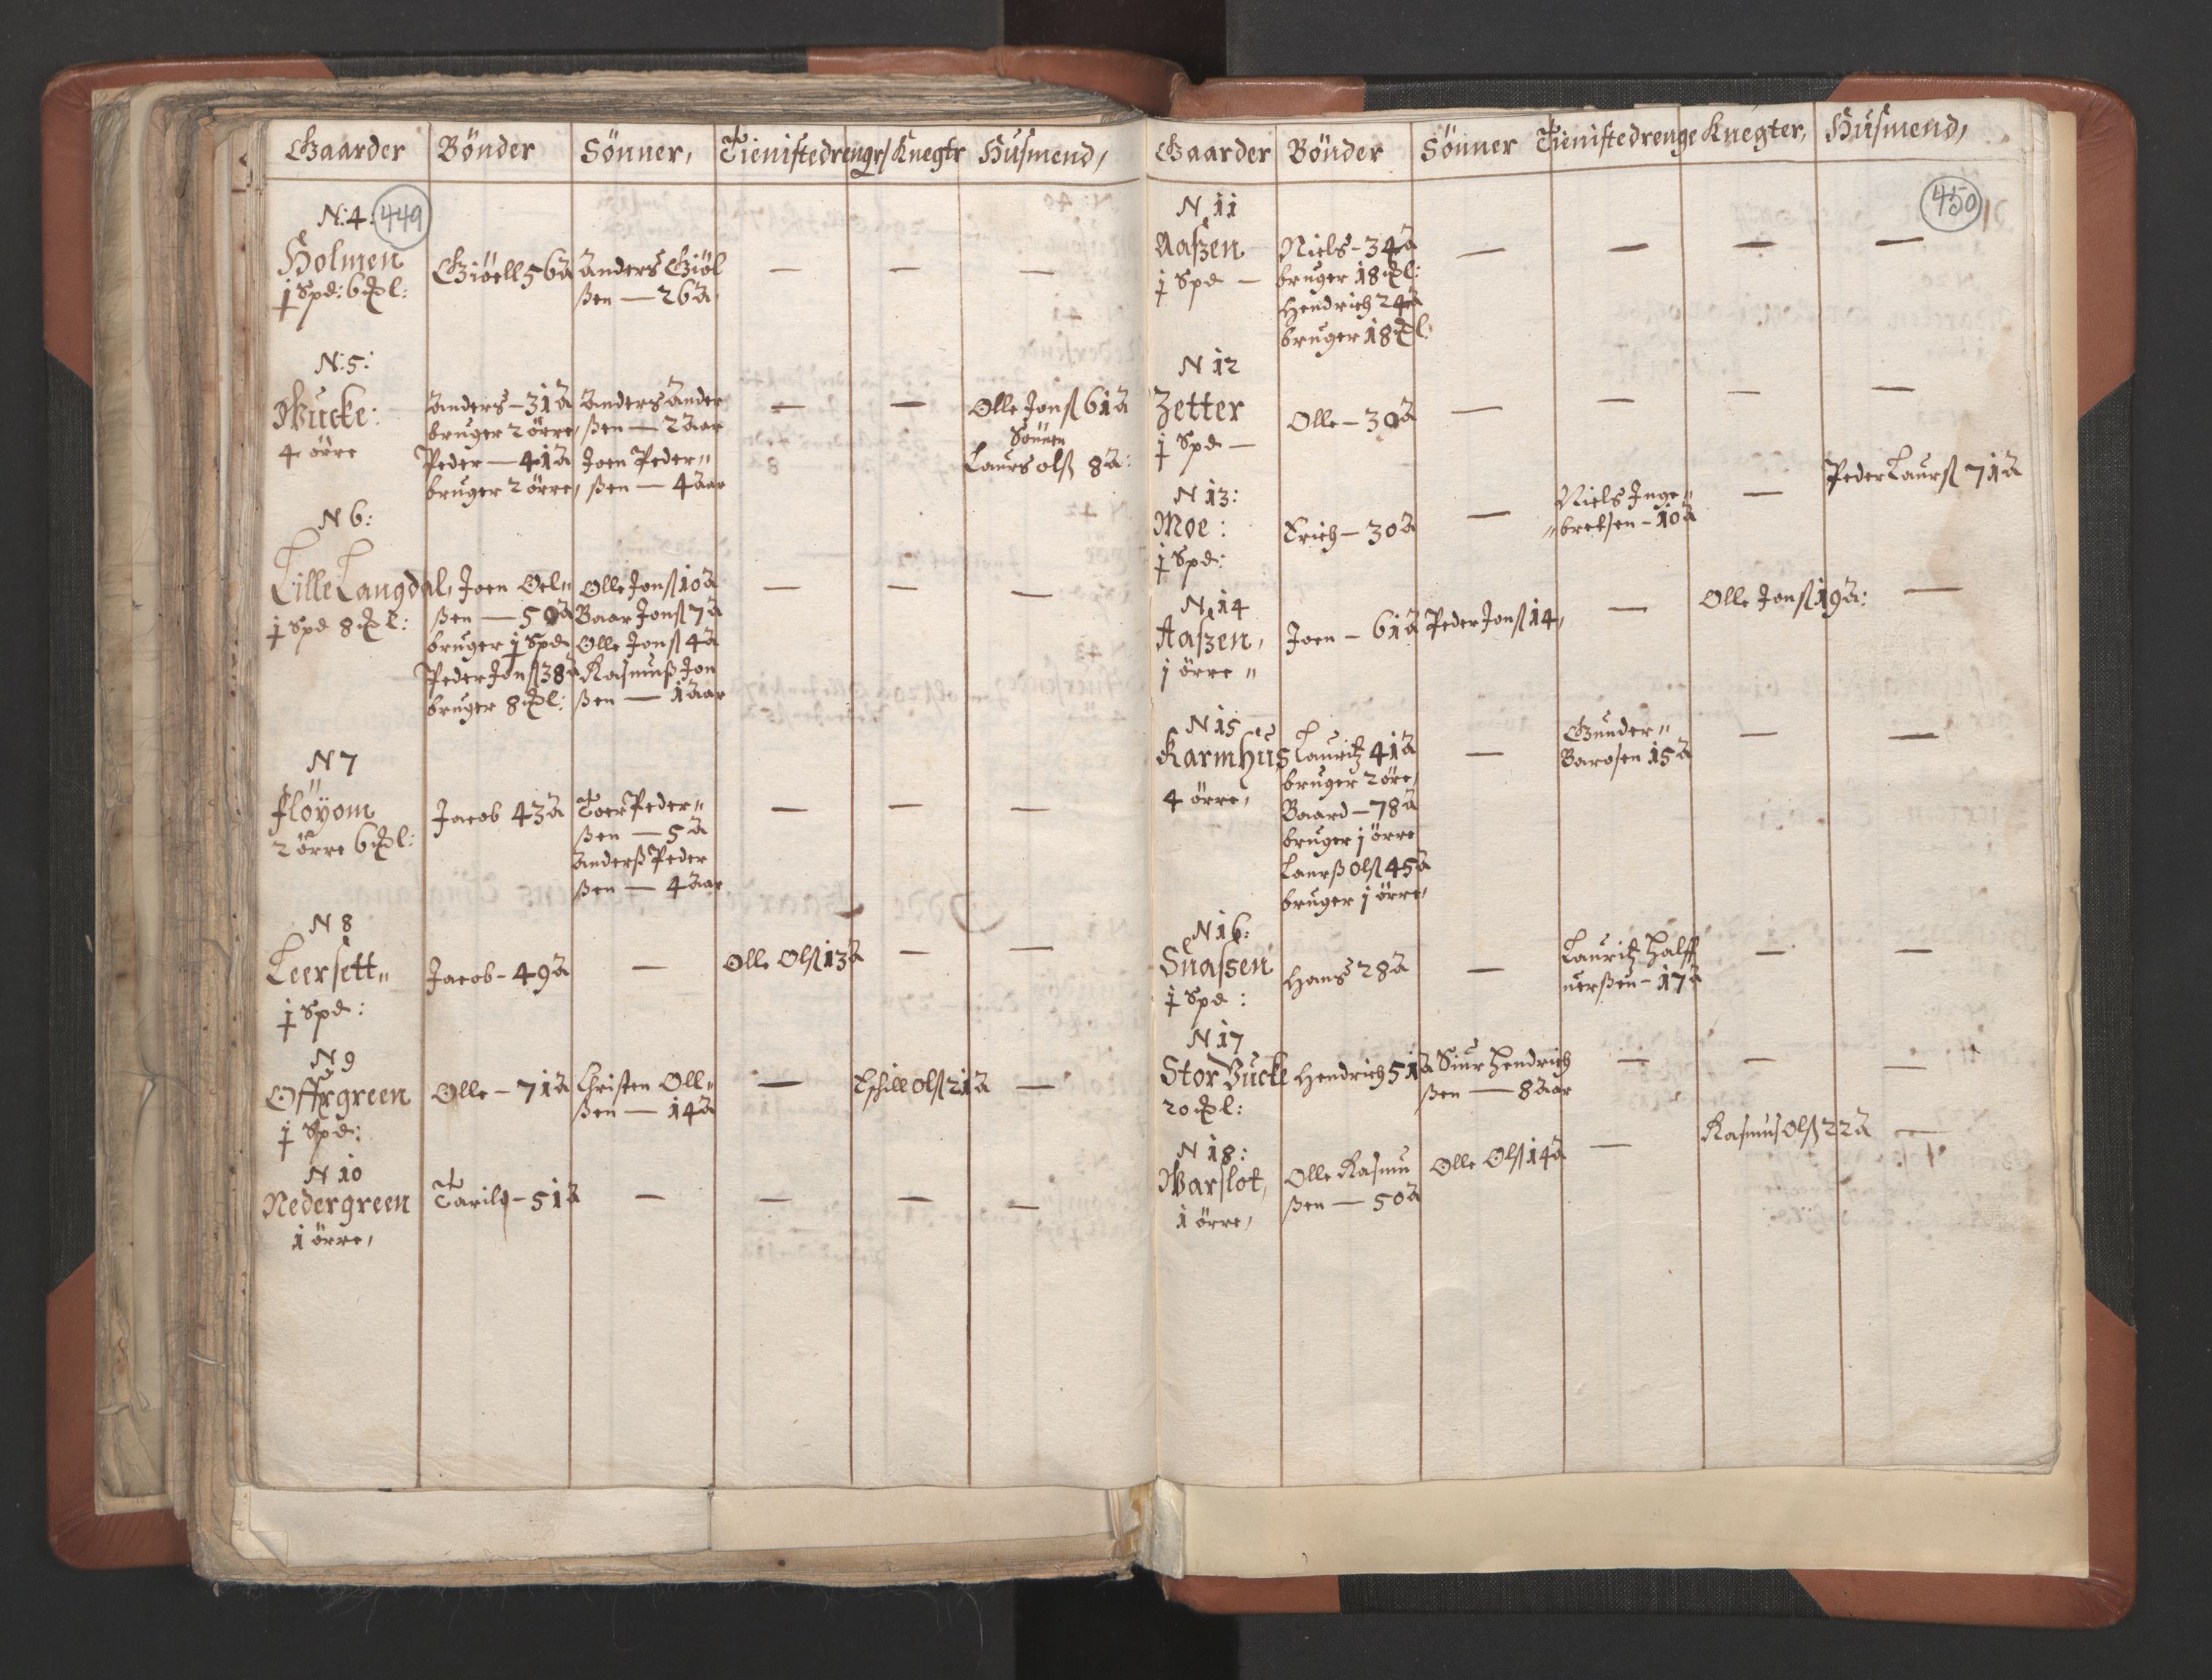 Gaarder Bönder Sönner, Tienistedrengr/ Knegtr Husmend,
N:4: 449
Holmen
j Spd: 6 ℔l:
Giöell 56 A
Anders Giöl
ßen — 26 A
— — —
N:5:
Wucke:
4 örre
Anders – 31 A
bruger 2 örre,
Peder — 41 A
bruger 2 örre,
Anders Ander
ßen — 2 Aar
Joen Peder„
ßen — 4 Aar
— —
Olle Jonß 61 A
Sönnen
Laurs olß 8 A:
N 6:
Lille Langdal,
j Spd 8 ℔l:
Joen Oel„
ßen — 50 A
bruger j Spd
Peder Jonß 38 A
bruger 8 ℔l:
Olle Jonß 10 A
Baar Jonß 7 A
Olle Jonß 4 A
Rasmuß Jon
ßen — 1 Aar
— — —
N 7
flöyom
2 örre 6 ℔l:
Jacob 43 A
Toer Peder„
ßen — 5 A
Anderß Peder
ßen — 4 Aar
— — —
N 8
Leersett„
j Spd:
Jacob – 49 A
—
Olle Olß 13 A
— —
N 9
Offrgreen
j Spd:
Olle – 71 A
Christen Oll„
ßen — 14 A
—
Eschill olß 21 A
—
N 10
Nedergreen
1 örre,
Tarild – 51 A
— — — —
Gaarder Bönder Sönner Tienistedrenge Knegter, Husmend,
450
N 11
Aaszen
j Spd —
Niels – 34 A
bruger 18 ℔l:
Hendrich 24 A
bruger 18 ℔l:
— — — —
N 12
Zetter
j Spd —
Olle – 30 A
— — — —
N 13:
Moe:
j Spd:
Erich – 30 A
—
Niels Inge„
„bretsen – 10 A
—
Peder Laurß 71 A
N 14
Aaszen,
j örre „
Joen – 61 A
Peder Jonß 14,
—
Olle Jonß 19 A:
—
N 15
Karmhus
4 örre,
Lauritz 41 A
bruger 2 öre,
Baard – 78 A
bruger j örre
Laurß Olß 45 A
bruger j örre,
—
Gunder„
Barosen 15 A
— —
N 16:
Snaßen
j Spd:
Hans 28 A
—
Lauritz Halff
uerßen – 17 A
— —
N 17
Stor Vucke
20 ℔l:
Hendrich 51 A
Siur Hendrich
ßen — 8 Aar
— — —
N 18:
Warslot,
1 örre,
Olle Rasmu
ßen — 50 A
Olle Olß 14 A
—
Rasmus Olß 22 A
—